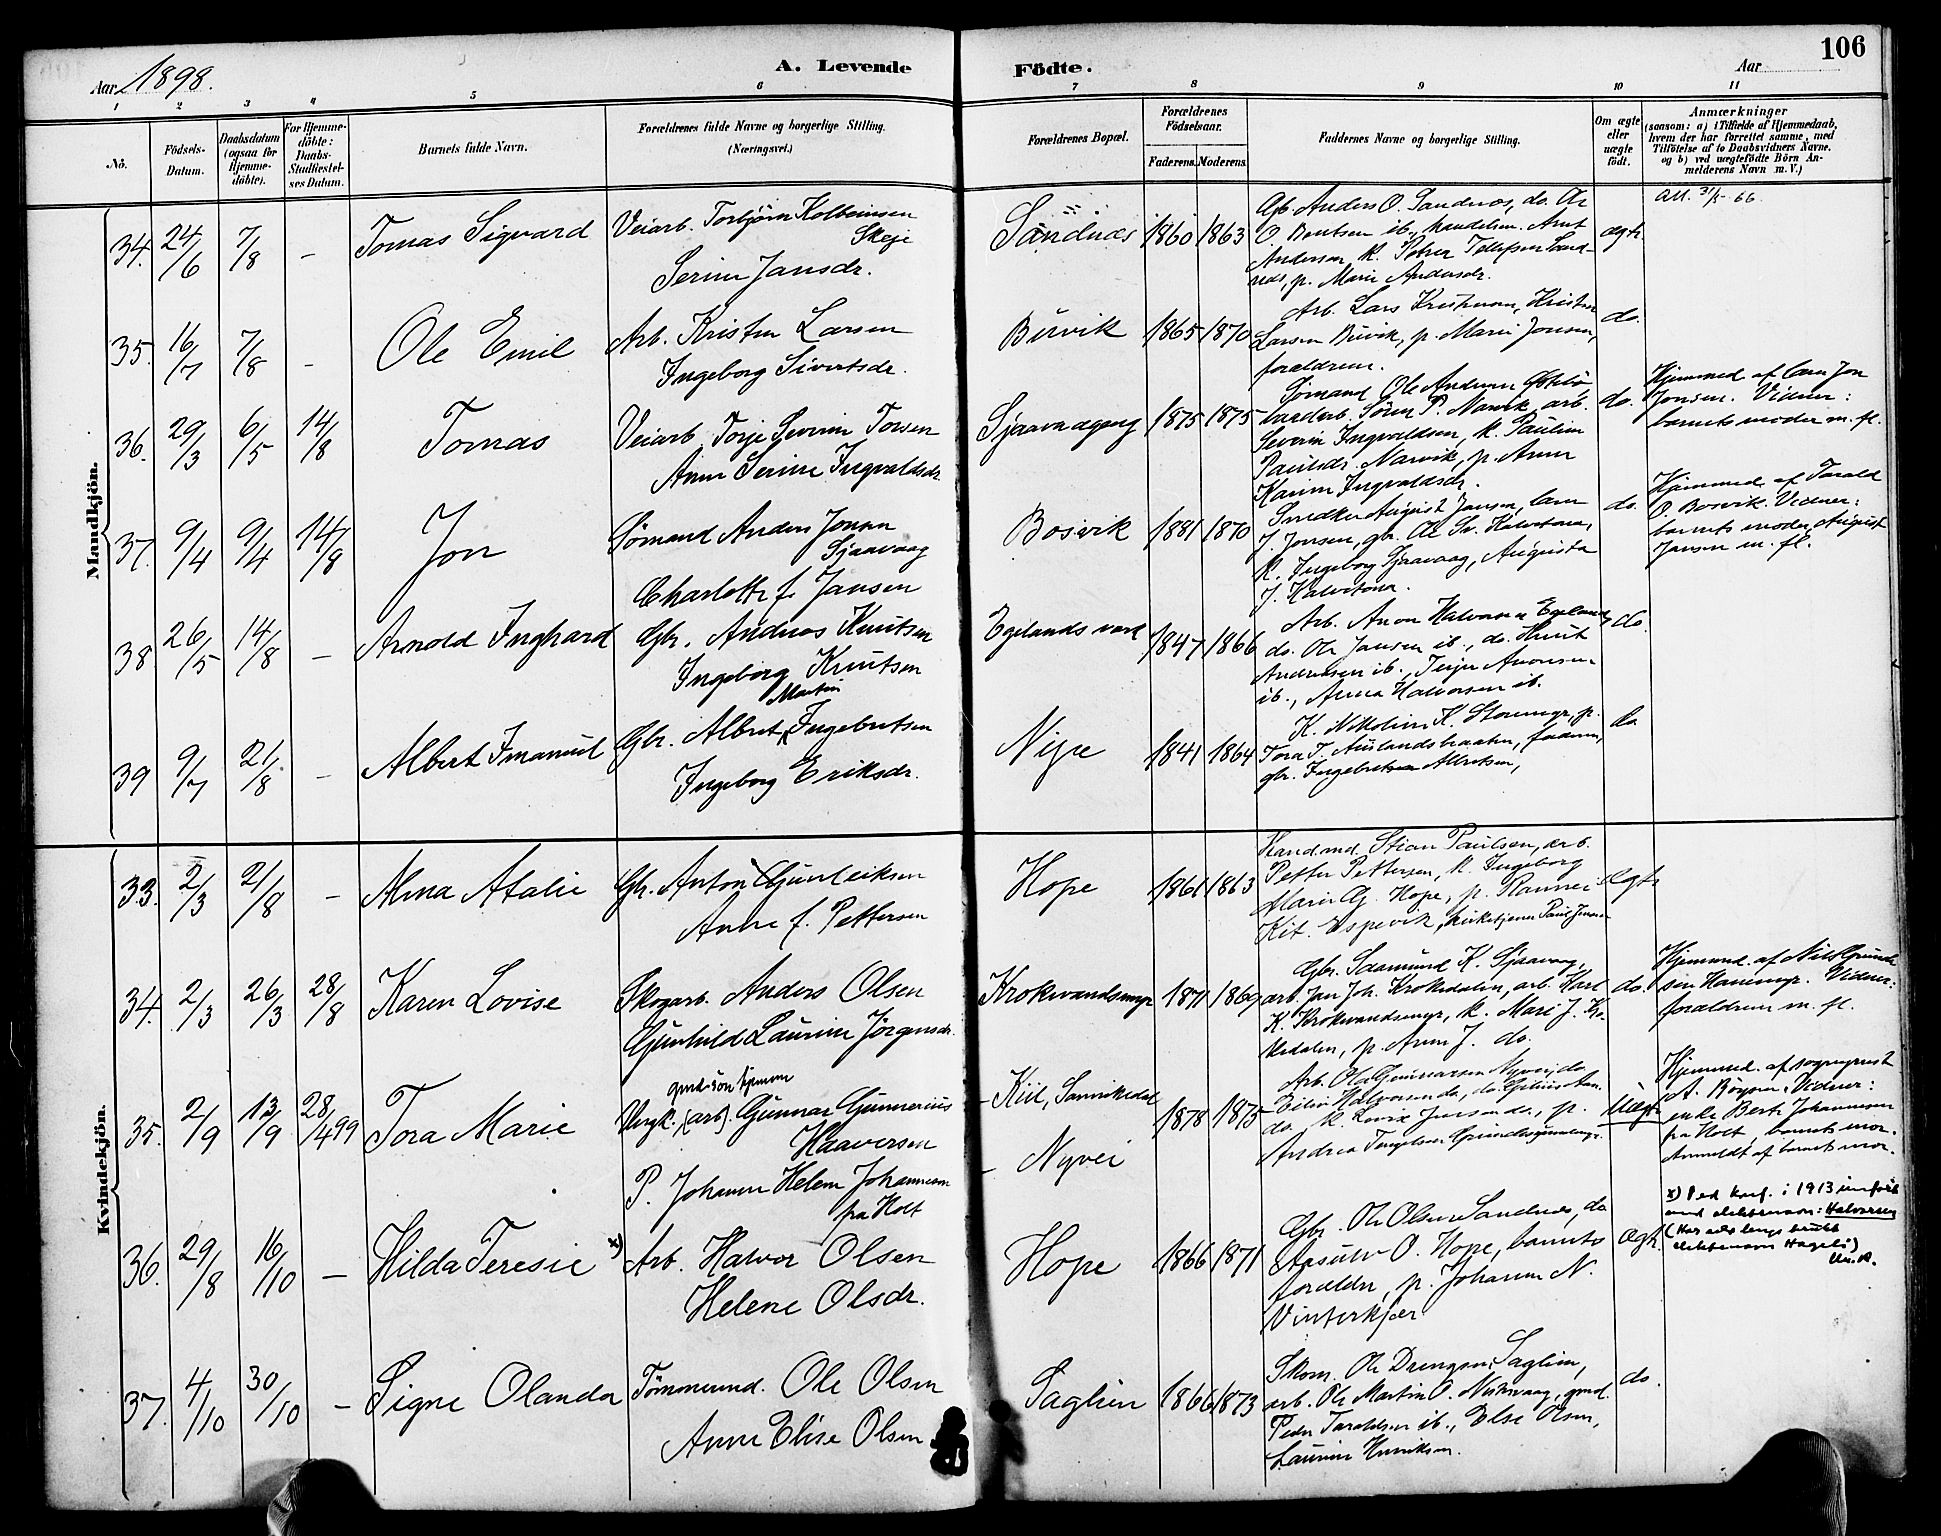 Aar 1898.
A. Levende
Födte.
Aar
106
1 2 3 4 5 6 7 8 9 10 11
No.
Födsels-
Datum.
Daabsdatum
(ogsaa for
Hjemme-
döbte).
For Hjemme-
döbte:
Daabs-
Stadfæstel-
ses Datum.
Barnets fulde Navn.
Forældrenes fulde Navne og borgerlige Stilling.
(Næringsvei.)
Forældrenes Bopæl.
Forældrenes
Födselsaar.
Faderens. Moderens.
Faddernes Navne og borgerlige Stilling.
Om ægte
eller
uægte
født.
Anmærkninger
(saasom: a) i Tilfælde af Hjemmedaab,
hvem der har forrettet samme, med
Tilföielse af to Daabsvidners Navne.
og b) ved uægtefödte Börn An-
melderens Navn m. V.)
Mandkjön.
34. 24/6 7/8 - Tomas Sigvard
Veiarb. Torbjörn Kolbeinsen
Skeje
Serine Jansdr.
Sandnæs 1860 1863
Gb. Anders O. Sandnæs, do. Ol
O. Bentsen ib., handelsm. Arnt
Andersen, k. Petrea Tellefsen Sand-
næs, p. Marie Andersdr.
ægte
Att. 31/5 - 66.
35. 16/7 7/8 - Ole Emil
Arb. Kristen Larsen
Ingeborg Sivertsdr.
Buvik 1865 1870
Arb. Lars Kristensen, Kristen
Larsen Buvik, p. Marie Jonsen,
forældrene.
do.
36. 29/3 6/5 14/8 Tomas
Veiarb. Torje Severin Torsen
Anne Serine Ingvaldsdr.
Sjaavaag 1875 1875
Sømand Ole Andersen
Søren P. Narvik, arb.
Severin Ingvaldsen, k. Pauline
Paulsdr. Narvik, p. Anne
Karine Ingvaldsdr.
do.
Hjemmed. af Jon
Jonsen. Vidner:
barnets moder m. fl.
37. 9/4 9/4 14/8 Jon
Sømand Anders Jonsen
Sjaavaag
Charlotte f. Jansen
Bosvik 1881 1870
Snedker August Jansen,
J. Jonsen, gbr. Ol Sv. Kalvstøna,
k. Ingeborg Sjaavaag, Augusta
J. Kalvstøna.
do.
Hjemmed. af Tarald
O. Bosvik. Vidner:
barnets moder, August
Jansen m. fl.
38 26/5 14/8 - Arnold Inghard
Gbr. Andreas Knutsen
Ingeborg Knutsen
Egelands verk 1847 1866
Arb. Anon Halvorsen Egeland,
do. Ole Jansen ib., do. Knut
Andreasen ib., Terjer Anonsen
ib., Anna Halvorsen ib.
do.
39 9/7 21/8 - Albert Imanuel
Martin
Gbr. Albret Ingebretsen
Ingeborg Eriksdr.
Nipe 1841 1864
K. Nikoline K. Storemyr, p.
Tora T. Auslandsbraaten, faderen,
gbr. Ingebretsen Albretsen,
do
Kvindekjön.
33. 2/3 21/8 - Alma Atalie
Gbr. Anton Gunleiksen
Anne f. Pettersen
Hope 1861 1863
Handmd. Stian Paulsen, arb.
Petter Pettersen, k. Ingeborg
Marie Hope, p. Rannei
Kit. Espevik, kirketjener Paul Jensen
ægte
34. 2/3 26/3 28/8 Karen Lovise
Skogarb. Anders Olsen
Gunhild Laurine Jörgensdr.
Krokvandsmyr 1871 1869
Gbr. Saamund K. Sjaavaag,
arb. Jan Joh. Krokedalen, arb. Karl
K. Krokvandsmyr, k. Mari J. Kro-
kedalen, p. Anne J. do.
do.
Hjemmed. af Nils Gunde
sen Vidner:
forældrene m. fl.
35. 2/9 13/9 28/4 99 Tora Marie
grd-søn hjemme
Ungk. (arb). Gunnar Gunnerius
Haaversen
P. Johanne Helene Johannesen
fra Holt
- Kiil, Sannikedal
- Nyvei
1878 1875
Arb. Ole Gunnarsen Nyvei, do
Eilev Halvorsen do,
do, k. Lovise Jensen do, p.
Andrea
Uægte
Hjemmed. af sogneprest
A. Bøyesen. Vidner:
enke Berte Johannesen
fra Holt, barnets mor.
Anmeldt af barnets mor.
36. 29/8 16/10 - Hilda Teresie x)
Arb. Halvor Olsen
Helene Olsdr.
Hope 1866 1871
Gbr. Ole Olsen Sandnæs, do
Aasulv O. Hope, barnets
forældre, p. Johanne N.
Vinterkjær
ægte.
x) Ved konf. i 1913 innført
med slektsnavn: Halvorsen
(Har selv lengs brukt
slektsnavn Hageli)
37. 4/10 30/10 - Signe Olanda
Tömmermd. Ole Olsen
Anne Elise Olsen
Saglien 1866 1873
Skom. Ole Drengsen Saglien,
arb. Ole Martin O. Neskvaag, gmd.
Peder Taraldsen ib., Else Olsen,
Laurine Henriksen.
do.